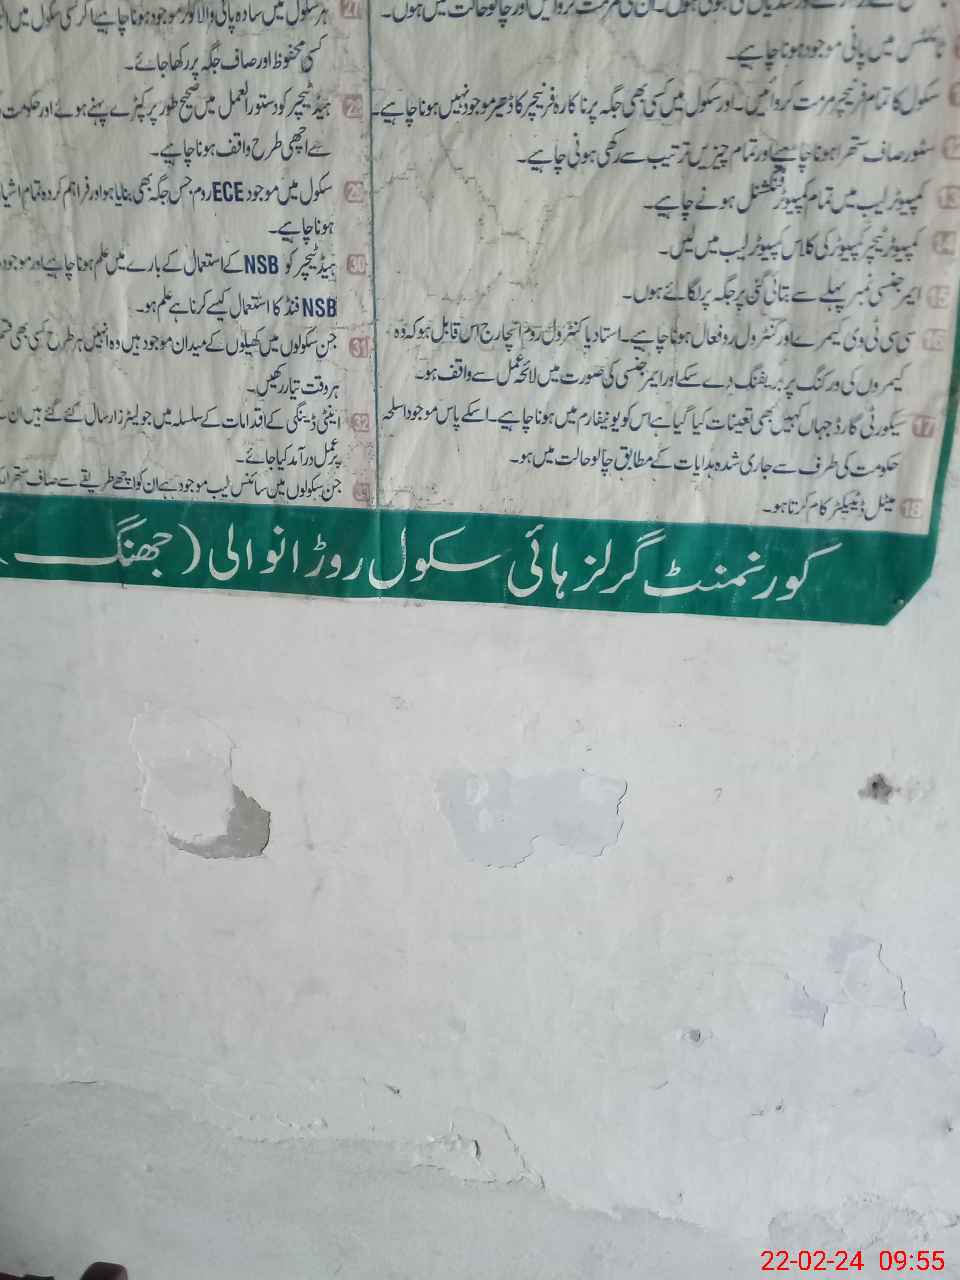 ٹائلٹس میں پانی موجود ہونا چاہیے۔
سکول کا تمام فرنیچر مرمت کروائیں۔ اور سکول میں کسی بھی جگہ پر ناکارہ فرنیچر کا ڈھیر موجود نہیں ہونا چاہیے۔
سٹور صاف ستھرا ہونا چاہیے اور تمام چیزیں ترتیب سے رکھی ہونی چاہیے۔
13 کمپیوٹر لیب میں تمام کمپیوٹر فنکشنل ہونے چاہیے۔
14 کمپیوٹر ٹیچر کمپیوٹر کی کلاس کمپیوٹر لیب میں لیں۔
15 ایمرجنسی نمبر پہلے سے بتائی گئی ہر جگہ پر لگائے ہوں۔
16 سی سی ٹی وی کیمرے اور کنٹرول روم فعال ہونا چاہیے۔ استاد یا کنٹرول روم انچارج اس قابل ہو کہ وہ
کیمروں کی ورکنگ پر بریفنگ دے سکے اور ایمرجنسی کی صورت میں لائحہ عمل سے واقف ہو۔
17 سیکورٹی گارڈ جہاں کہیں بھی تعینات کیا گیا ہے اس کو یونیفارم میں ہونا چاہیے۔ اسکے پاس موجود اسلحہ
حکومت کی طرف سے جاری شدہ ہدایات کے مطابق چالو حالت میں ہو۔
18 میٹل ڈیٹیکٹر کام کرتا ہو۔
27 ہر سکول میں سادہ پانی والا کولر موجود ہونا چاہیے اگر کسی سکول میں
کسی محفوظ اور صاف جگہ پر رکھا جائے۔
28 ہیڈ ٹیچر کو دستور العمل میں صحیح طور پر کپڑے پہنے ہوئے اور حکومت
سے اچھی طرح واقف ہونا چاہیے۔
29 سکول میں موجود ECE روم جس جگہ بھی بنایا ہو اور فراہم کردہ تمام اشیا
ہونا چاہیے۔
30 ہیڈ ٹیچر کو NSB کے استعمال کے بارے میں علم ہونا چاہیے اور موجود
NSB فنڈ کا استعمال کیسے کرنا ہے علم ہو۔
31 جن سکولوں میں کھیلوں کے میدان موجود ہیں وہ انہیں ہر طرح کسی بھی
ہر وقت تیار رکھیں۔
32 اینٹی ڈینگی کے اقدامات کے سلسلہ میں جو لیٹرز ارسال کئے گئے ہیں ان
پر عمل درآمد کیا جائے۔
33 جن سکولوں میں سائنس لیب موجود ہے ان کو اچھے طریقے سے صاف ستھرا
گورنمنٹ گرلز ہائی سکول روڑانوالی (جھنگ)
22-02-24 09:55